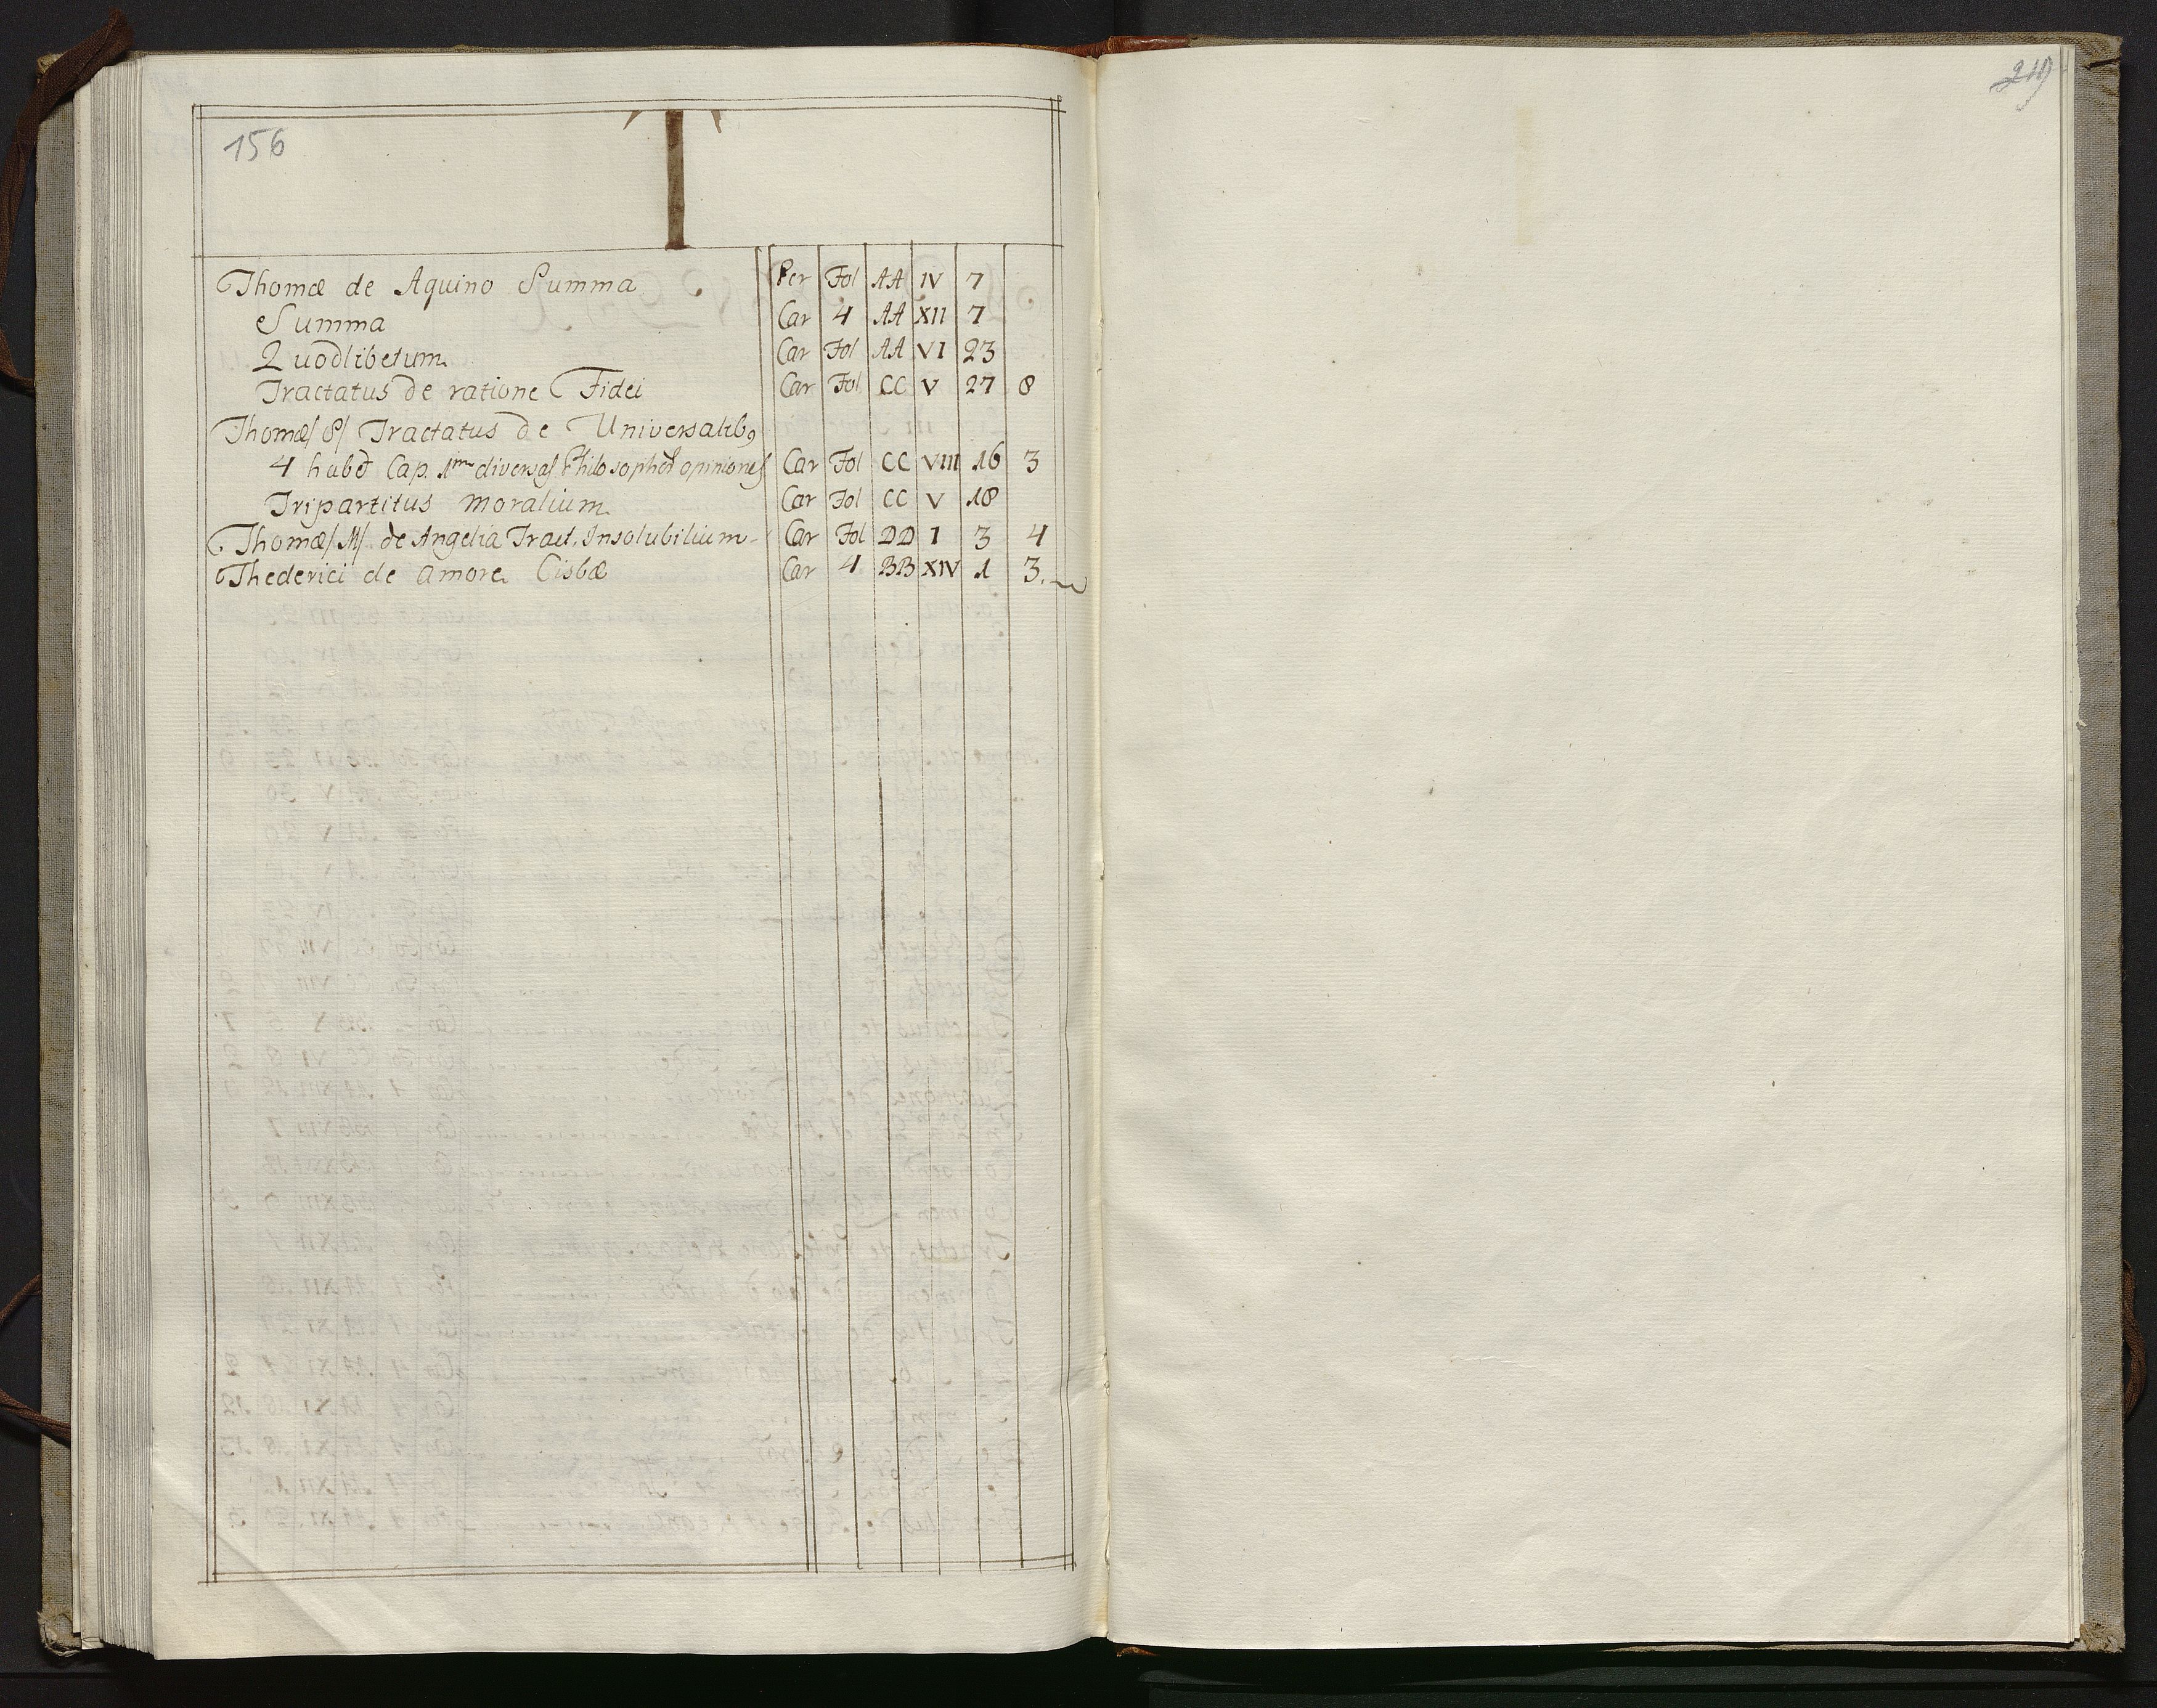 156
T
Thomæ de Aquino Summa Per Fol AA IV 7
Summa Car 4 AA XII 7
Quodlibetum Car Fol AA VI 23
Tractatus de ratione Fidei Car Fol CC V 27 8
Thomæ/S/ Tractatus de Universalibꝰ
4 habet Cap. 1m diversas opiniones Car Fol CC VIII 16 3
Tripartitus Moralium Car Fol CC V 18
Thomæ/M/ de Angelia Tract. Insolubilium Car Fol DD I 3 4
Thederici de Amore Cisbæ Car 4 BB XIV 1 3.